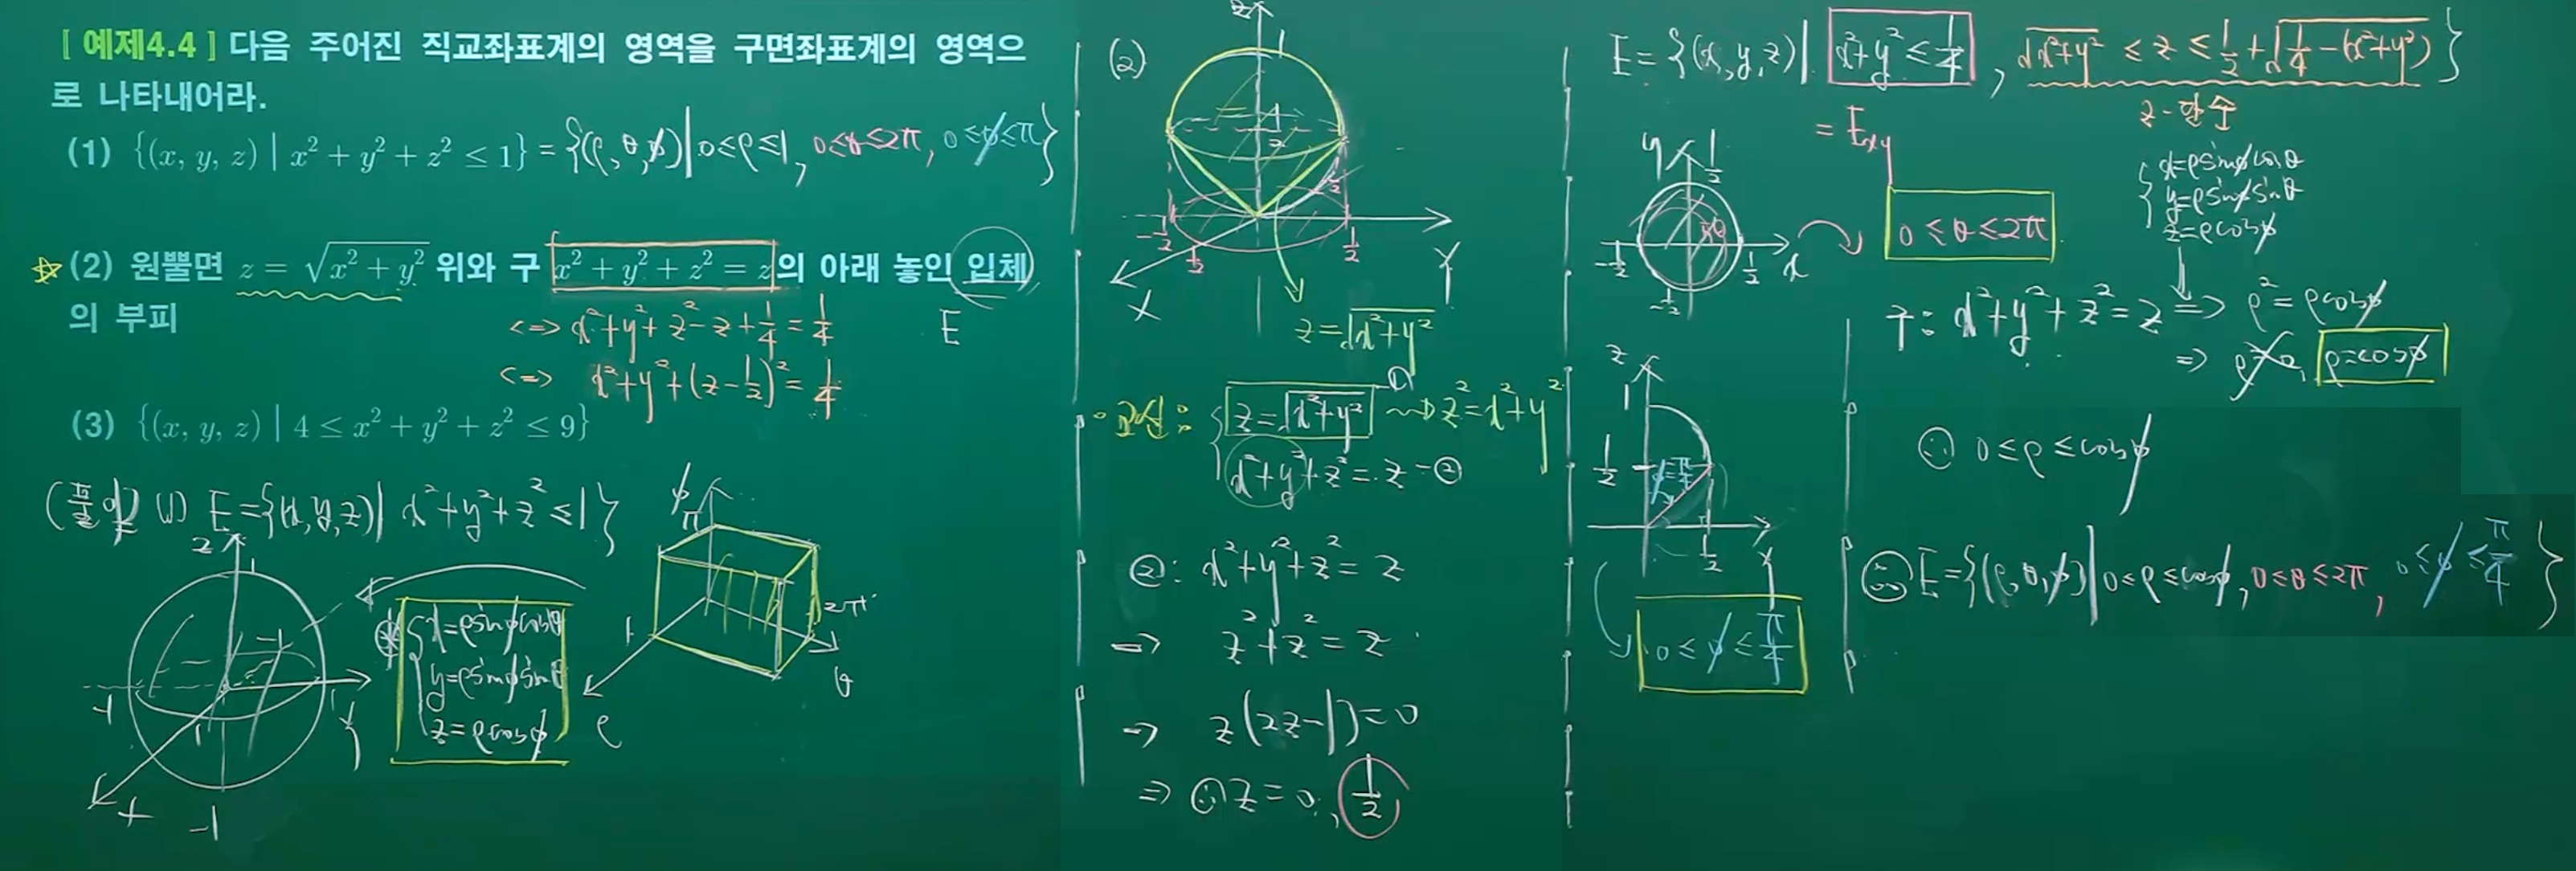 [ 예제4.4 ] 다음 주어진 직교좌표계의 영역을 구면좌표계의 영역으
로 나타내어라.
(1) {(x, y, z) | x² + y² + z² ≤ 1} = {(ρ, θ, φ) | 0≤ρ≤1, 0≤θ≤2π, 0≤φ≤π}
☆ (2) 원뿔면 z = √(x² + y²) 위와 구 x² + y² + z² = z 의 아래 놓인 입체
의 부피
E
<=> x²+y²+z²-z+1/4 = 1/4
<=> x²+y²+(z-1/2)² = 1/4
(3) {(x, y, z) | 4 ≤ x² + y² + z² ≤ 9}
(풀이) (1) E={(x,y,z)| x²+y²+z² ≤1}
z
1
-1
-1
1
1
y
x
-1
x=ρsinφcosθ
y=ρsinφsinθ
z=ρcosφ
φ
π
1
2π
θ
ρ
(2)
z
1
1/2
-1/2
1/2
1/2
1/2
X
Y
z=√(x²+y²)
교선: z=√(x²+y²) -① ~> z²=x²+y²
x²+y²+z²=z -②
②: x²+y²+z² = z
=> z²+z² = z
=> z(2z-1)=0
=> ∴ z=0, 1/2
E={(x,y,z)| x²+y² ≤ 1/4, √(x²+y²) ≤ z ≤ 1/2+√(1/4-(x²+y²))}
= Exy
z-함수
y
1/2
-1/2
1/2
-1/2
x
θ
0 ≤ θ ≤ 2π
x=ρsinφcosθ
y=ρsinφsinθ
z=ρcosφ
구: x²+y²+z²=z => ρ² = ρcosφ
=> ρ=0, ρ=cosφ
∴ 0≤ρ≤cosφ
z
1
1/2
φ=π/4
1/2
y
0 ≤ φ ≤ π/4
∴ E={(ρ,θ,φ)| 0≤ρ≤cosφ, 0≤θ≤2π, 0≤φ≤π/4}